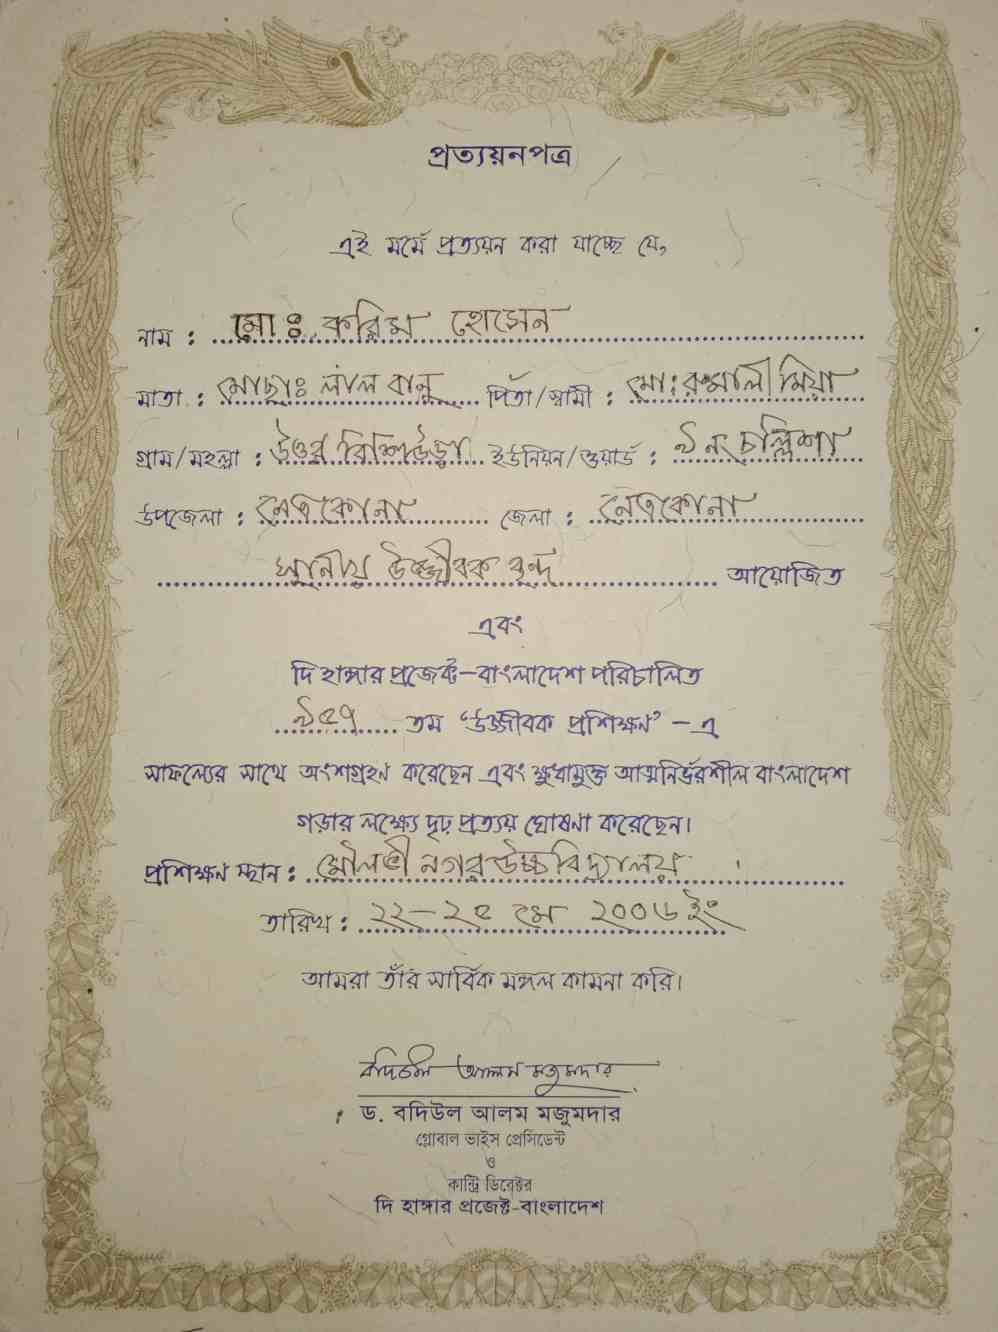 প্রত্যয়নপত্র
এই মর্মে প্রত্যয়ন করা যাচ্ছে যে,
নাম : মোঃ করিম হোসেন
মাতা : মোছাঃ লাল বানু পিতা/স্বামী : মোঃ রুমালী মিয়া
গ্রাম/মহল্লা : উত্তর বিশিউড়া ইউনিয়ন/ওয়ার্ড : ৯ নং চল্লিশা
উপজেলা : নেত্রকোনা জেলা : নেত্রকোনা
স্থানীয় উজ্জীবক বৃন্দ আয়োজিত
এবং
দি হাঙ্গার প্রজেক্ট-বাংলাদেশ পরিচালিত
৯৫৭ তম ‘উজ্জীবক প্রশিক্ষণ’ - এ
সাফল্যের সাথে অংশগ্রহণ করেছেন এবং ক্ষুধামুক্ত আত্মনির্ভরশীল বাংলাদেশ
গড়ার লক্ষ্যে দৃঢ় প্রত্যয় ঘোষণা করেছেন।
প্রশিক্ষণ স্থান : মৌলভী নগর উচ্চ বিদ্যালয়
তারিখ : ২২-২৫ মে ২০০৬ ইং
আমরা তাঁর সার্বিক মঙ্গল কামনা করি।
বদিউল আলম মজুমদার
ড. বদিউল আলম মজুমদার
গ্লোবাল ভাইস প্রেসিডেন্ট
ও
কান্ট্রি ডিরেক্টর
দি হাঙ্গার প্রজেক্ট-বাংলাদেশ